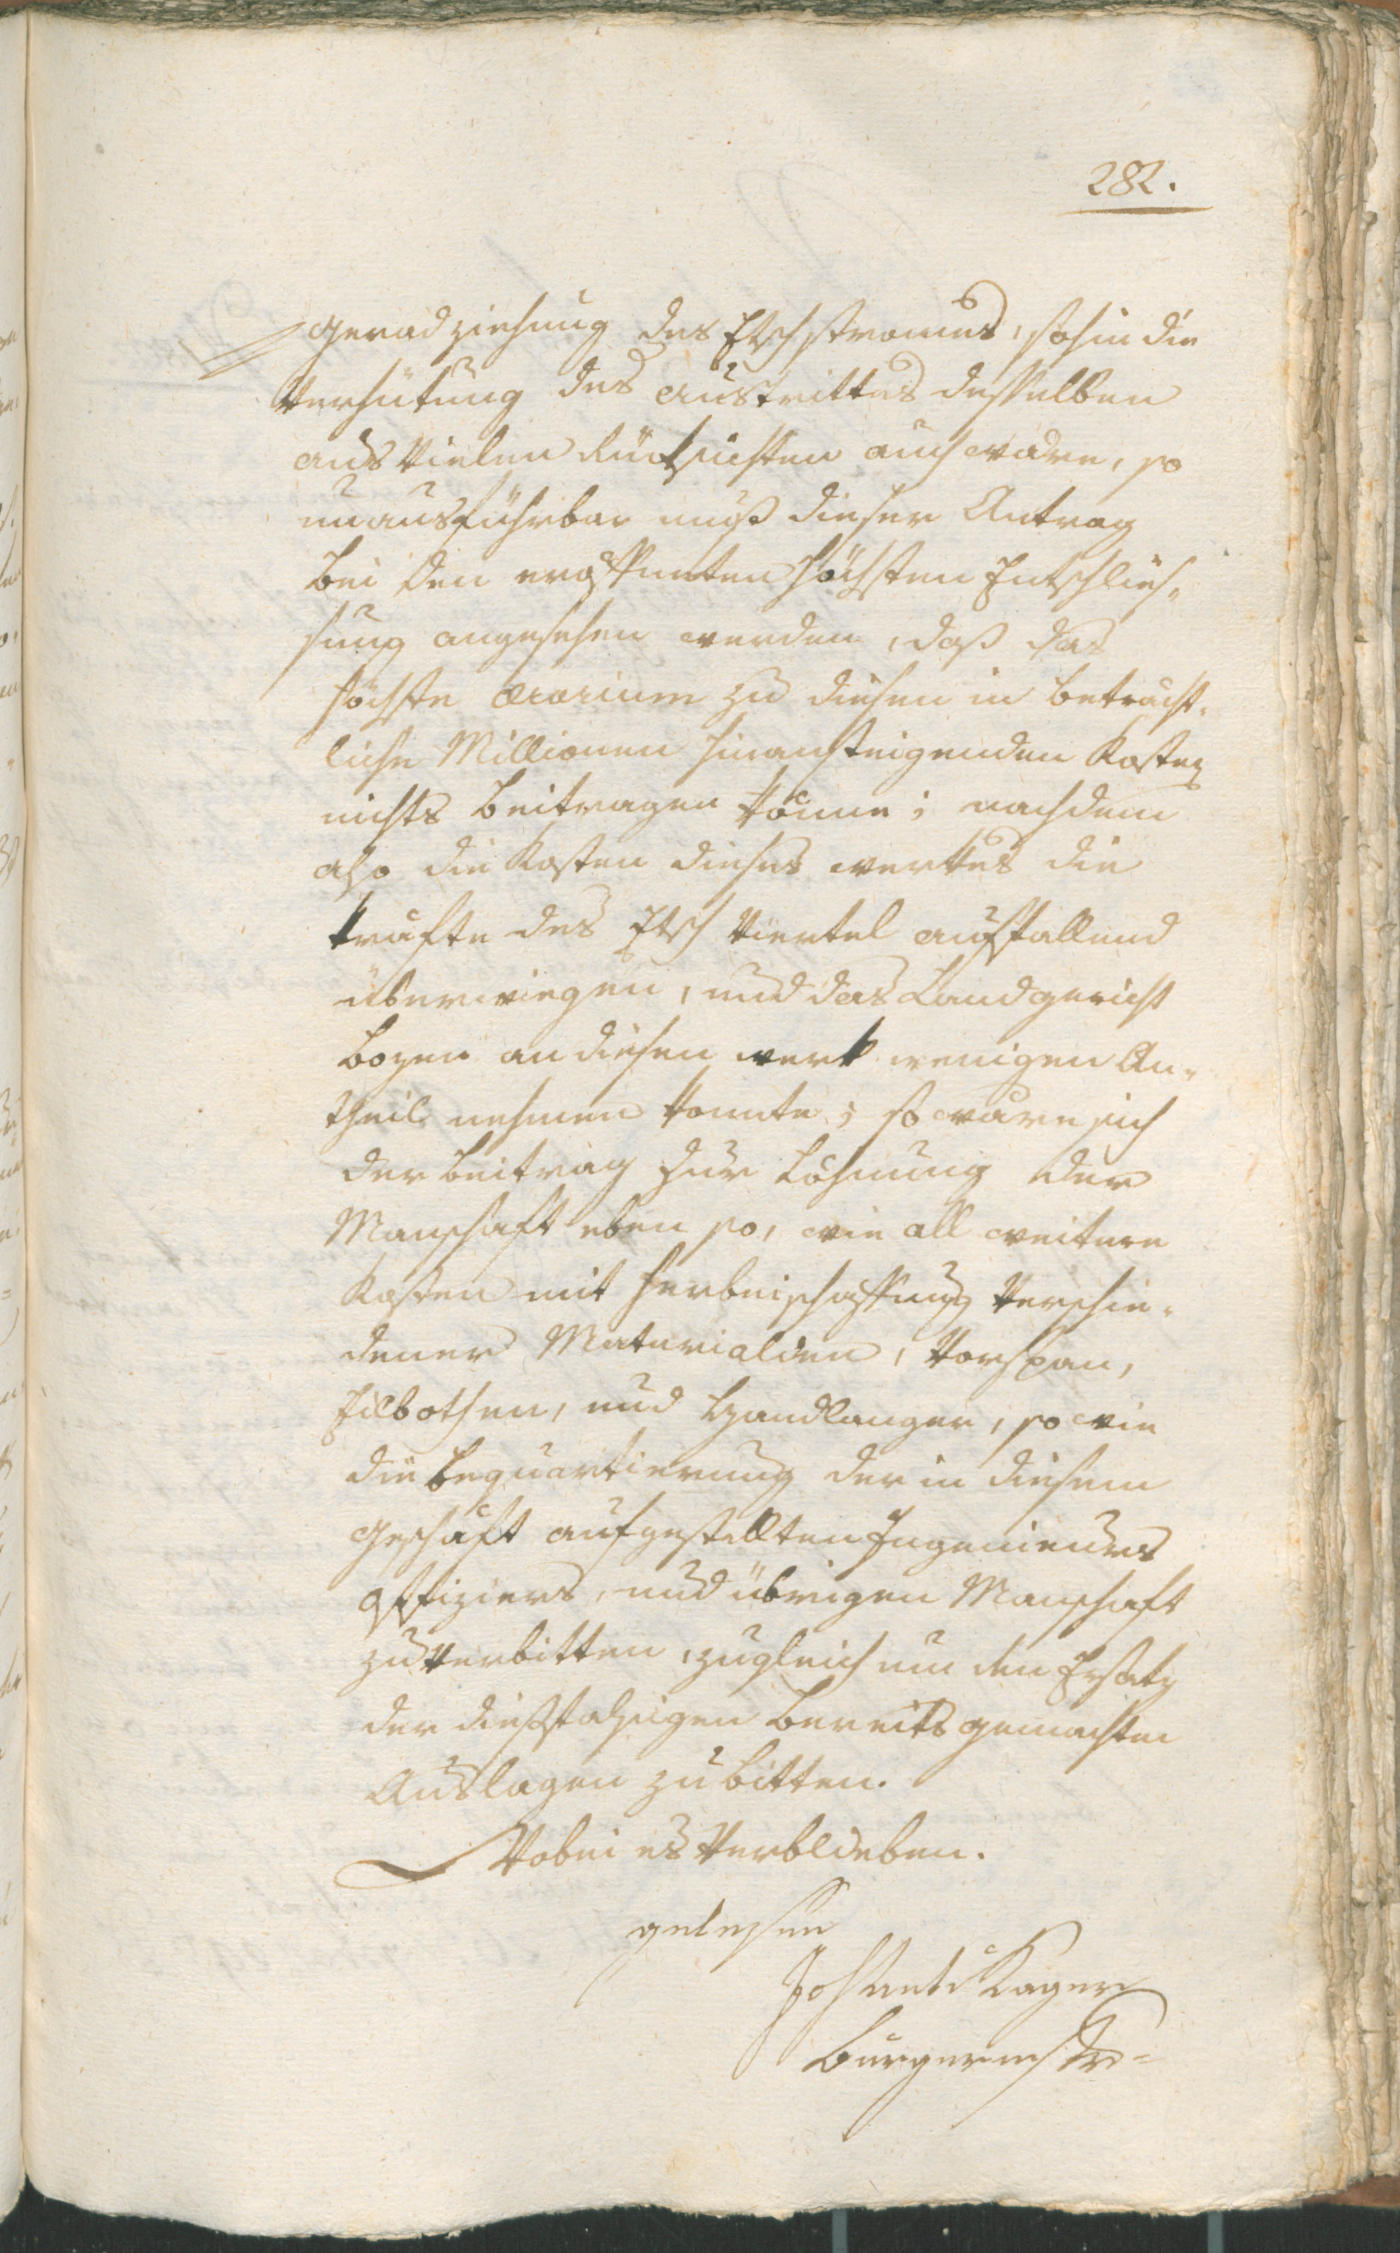 282.
Geradziehung des Etschstromes, sohin die
Verhütung des Austrittes desselben
aus vielen Rücksichten auch wäre, so
unausführbar muß dieser Antrag
bei den eröffneten höchsten Entschlies„
sung angesehen werden, daß das
höchste Aerarium zu diesen in beträcht„
liche Millionen hinansteigenden Kosten
nichts beitragen könne; nachdem
also die Kosten dieses Werkes die
Kräfte des Etsch Viertel auffallend
überwiegen, und das Landgericht
Bozen an diesen Werk wenigen An„
theil nehmen konnte; so wäre sich
der Beitrag zur Löhnung der
Manschaft eben so, wie all weitere
Kosten mit Herbeischaffung verschie„
dener Materialien, Vorspan,
Eilbothen, und Handlanger, so wie
die Bequartierung der in diesem
Geschäft aufgestellten Ingenieurs
Offiziers, und übrigen Manschaft
zu verbitten, zugleich um den Ersatz
der dießfalsigen bereits gemachten
Auslagen zu bitten.
Wobei es verblieben.
gelesen
Joh Kager
Burgermstr